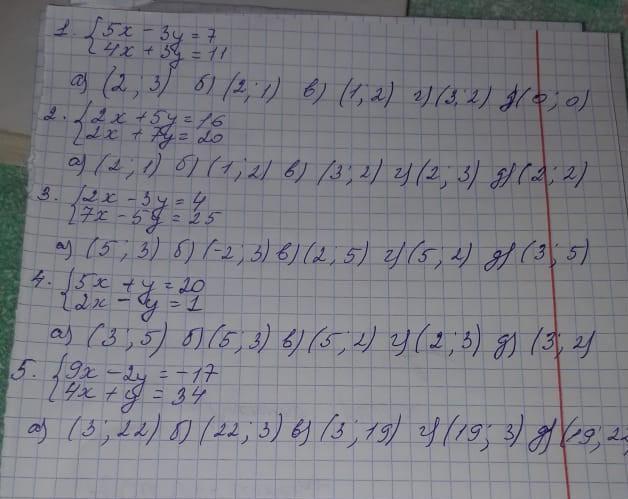 1. {5x - 3y = 7
{4x + 3y = 11
а) (2; 3) б) (2; 1) в) (1; 2) г) (3; 2) д) (0; 0)
2. {2x + 5y = 16
{2x + 7y = 20
а) (2; 1) б) (1; 2) в) (3; 2) г) (2; 3) д) (2; 2)
3. {2x - 3y = 4
{7x - 5y = 25
а) (5; 3) б) (-2; 3) в) (2; 5) г) (5; 2) д) (3; 5)
4. {5x + y = 20
{2x - y = 1
а) (3; 5) б) (5; 3) в) (5; 2) г) (2; 3) д) (3; 2)
5. {9x - 2y = -17
{4x + y = 34
а) (3; 22) б) (22; 3) в) (3; 19) г) (19; 3) д) (19; 22